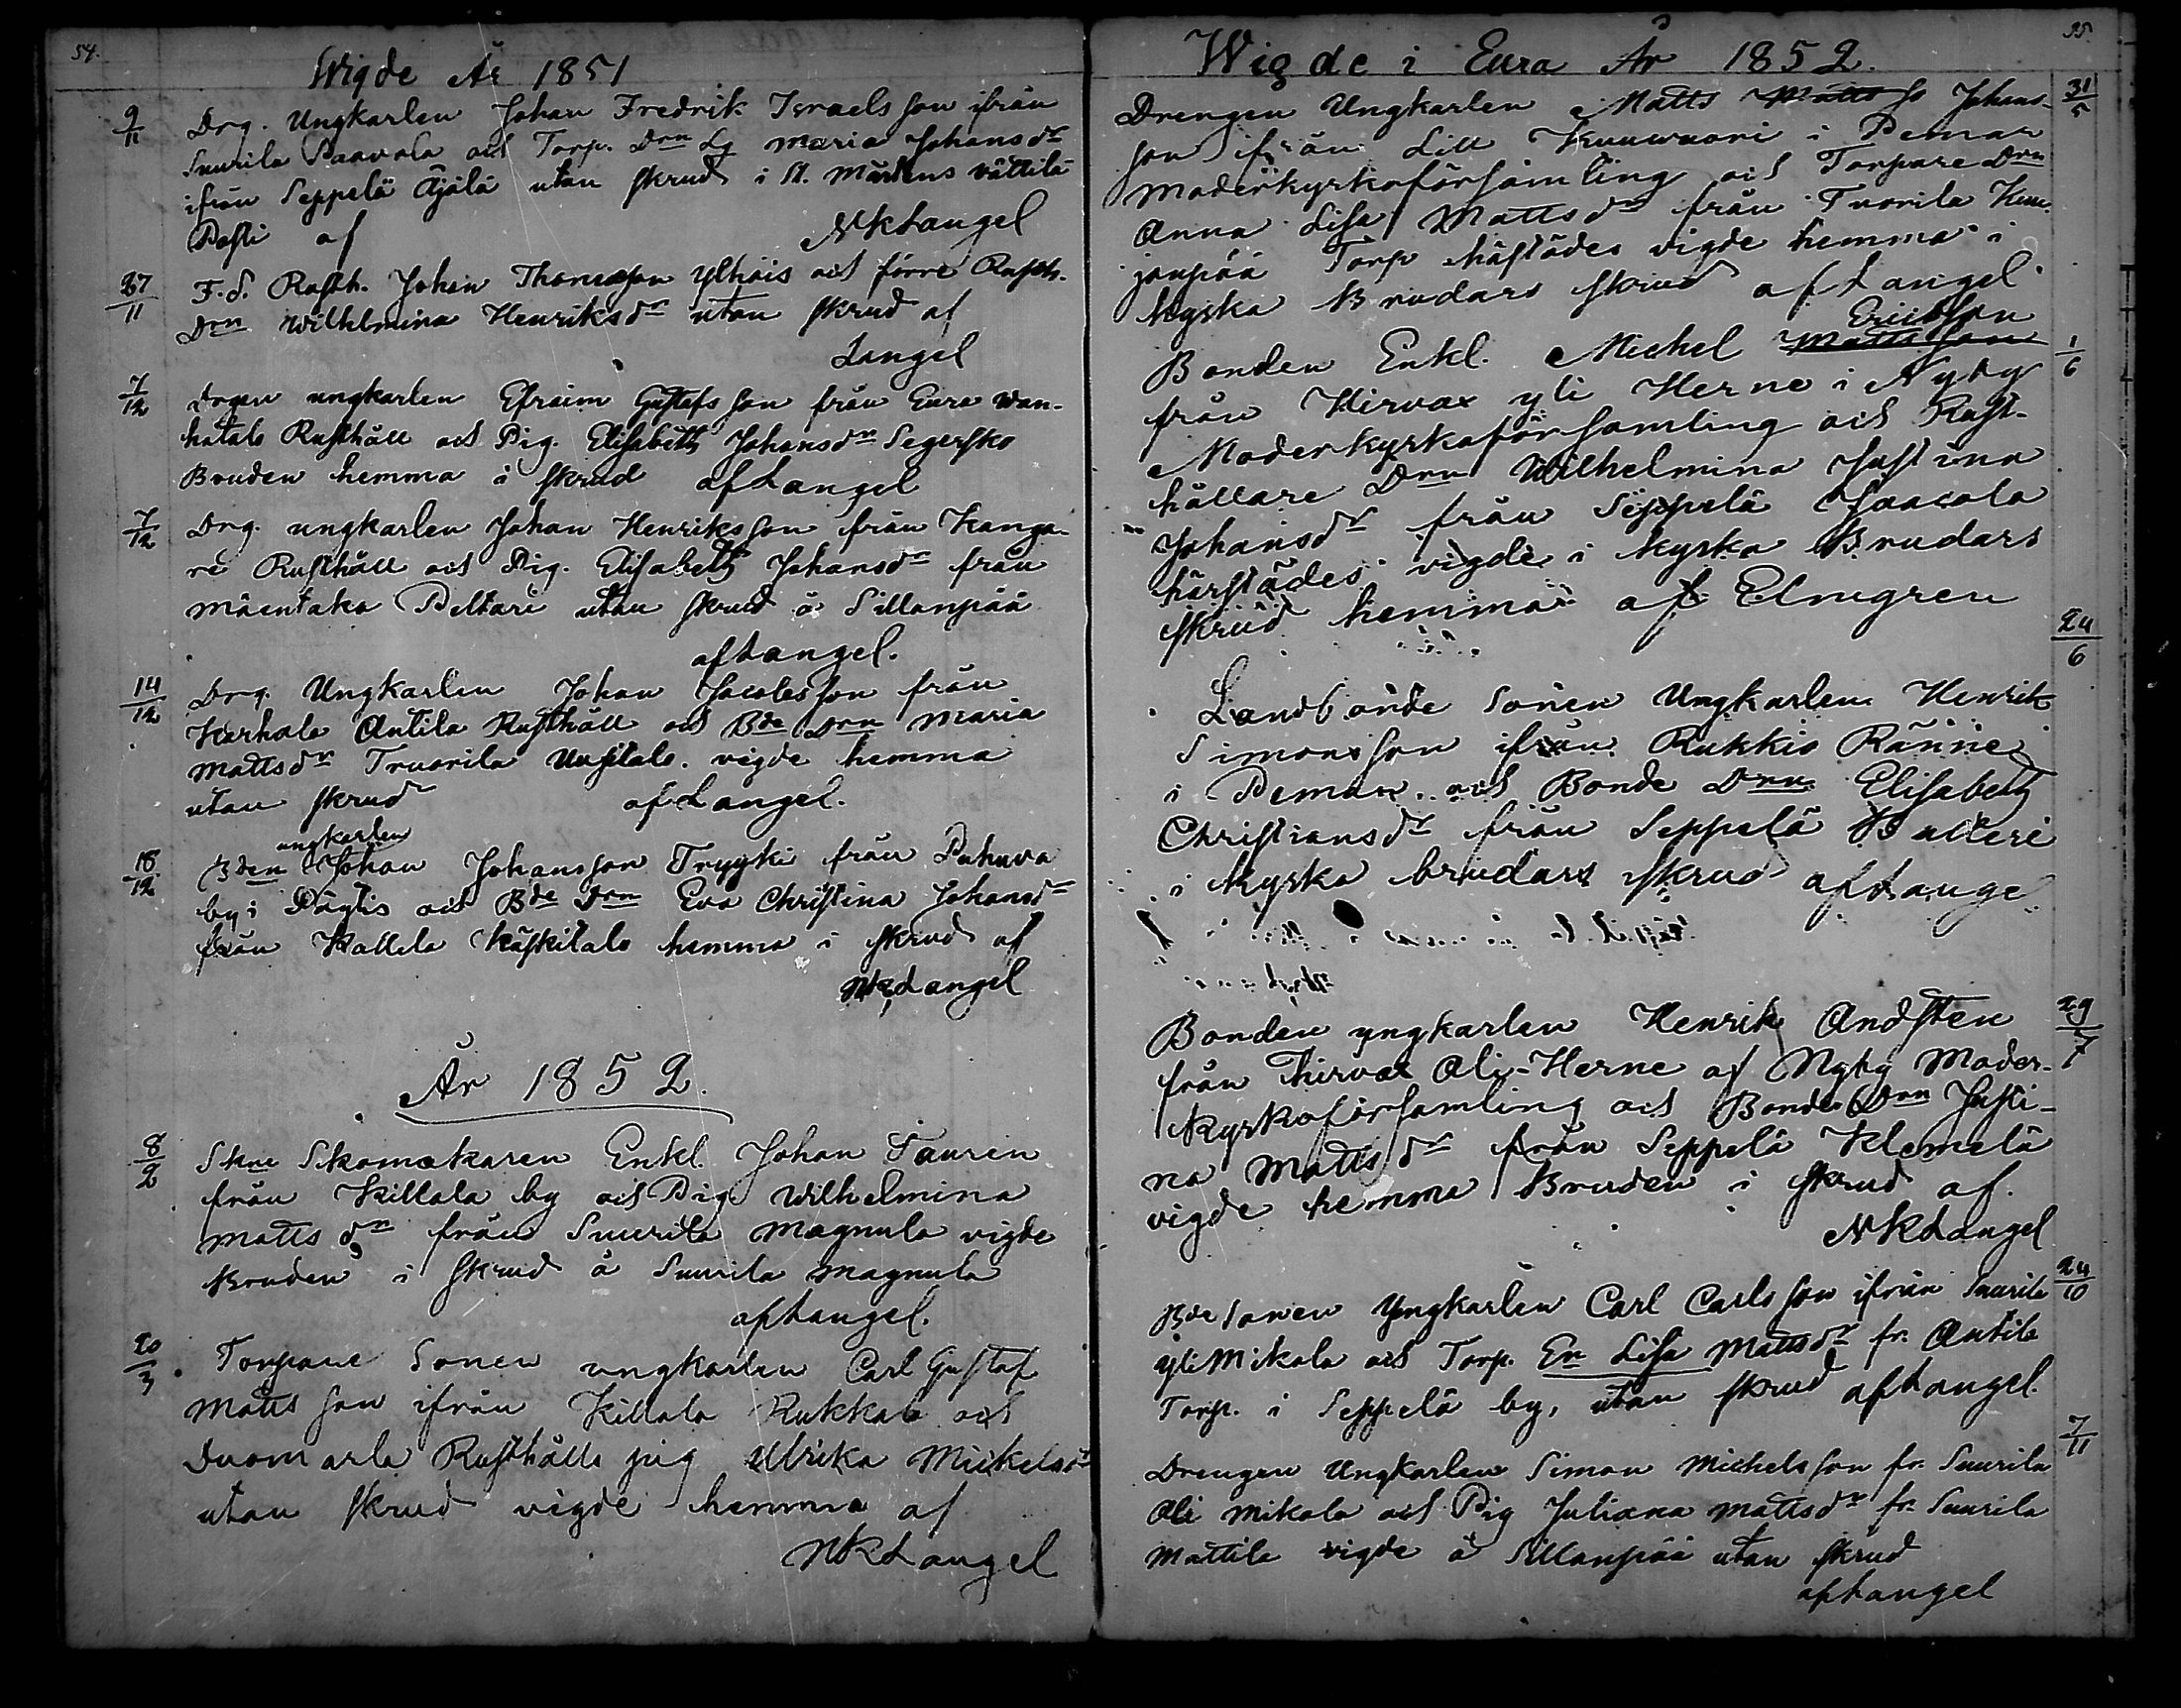 54.
Wigde År 1851
9/11 Drg. Ungkarlen Johan Fredrik Israelsson ifrån
Suurila Paavola och Torp. Drn Lg Maria Johansdr
ifrån Seppelä Äjälä utan skrud i St. Mårtens Vättilä
Pasti af NKLangel
27/11 F.d. Rusth. Johan Thomasson Ylhäis och förre Rusth.
Drn Wilhelmina Henriksdr utan skrud af
Langel
7/12 Drgen ungkarlen Efraim Gustafsson från Eura Wan-
hatalo Rusthåll och Pig. Elisabeth Johansdr Segersko
Bruden hemma i skrud af Langel
7/12 Drg. ungkarlen Johan Henriksson från Kanga-
re Rusthåll och Pig. Elisabeth Johansdr från
Mäentaka Peltari utan skrud å Sillanpää
af Langel.
14/12 Drg. Ungkarlen Johan Jacobsson från
Karhola Antila Rusthåll och Bde Drn Maria
Mattsdr Truorila Uusitalo. vigde hemma
utan skrud af Langel.
ungkarlen
18/12 Bden Johan Johansson Tryyki från Pahuva
by i Pöytis och Bde Drn Eva Christina Johansdr
från Kallela Käskitalo hemma i skrud af
NKLangel
År 1852.
8/2 Skne Skomakaren Enkl. Johan Tauren
från Killala by och Pig Wilhelmina
Mattsdr från Suurila Magnula vigde
Bruden i skrud å Suurila Magnula
af Langel.
20/3 Torpare Sonen ungkarlen Carl Gustaf
Matts son ifrån Killala Rukkala och
Duomarla Rusthålls pig Ullrika Mickelsdr
utan skrud vigde hemma af
NKLangel
35.
Wigde i Eura År 1852.
Drengen Ungkarlen Matts Matts so Johans- 31/5
son ifrån Lill Kuuwuori i Pemar
Moderkyrkoförsamling och Torpare Drn
Anna Lisa Mattsdr från Tuorila Kun-
janpää Torp härstädes vigde hemma i
Kyrko Brudars skrud af Langel
Ericsson
Bonden Enkl. Michel Mattsson 1/6
från Hirvax yli Herne i Nyby
Moderkyrkoförsamling och Rust-
hållare Drn Wilhelmina Justina
Johansdr från Seppelä Jaacola
härstädes vigde i Kyrko Brudars
skrud hemma af Elmgren
24/6
Landbonde Sonen Ungkarlen Henrik
Simonsson ifrån Rukkio Ränne
i Pemar och Bonde Drn Elisabeth
Christiansdr från Seppelä Balteri
i Kyrko brudars skrud af Langel
Bonden yngkarlen Henrik Andsten 29/7
från Hirvax Ali-Herne af Nyby Moder-
Kyrkoförsamling och Bonde Drn Justi-
na Mattsdr från Seppelä Klemelä
vigde hemma Bruden i skrud af.
NKLangel
Bde sonen Yngkarlen Carl Carlsson ifrån Suurila 24/10
yli Mikola och Torp. En Lisa Mattsdr fr. Antila
Torp. i Seppelä by, utan skrud af Langel.
Drengen Ungkarlen Simon Michelsson fr. Suurila 7/11
Ali Mikola och Pig Juliana Mattsdr fr. Suurila
Mattila vigde å Sillanpää utan skrud
af Langel